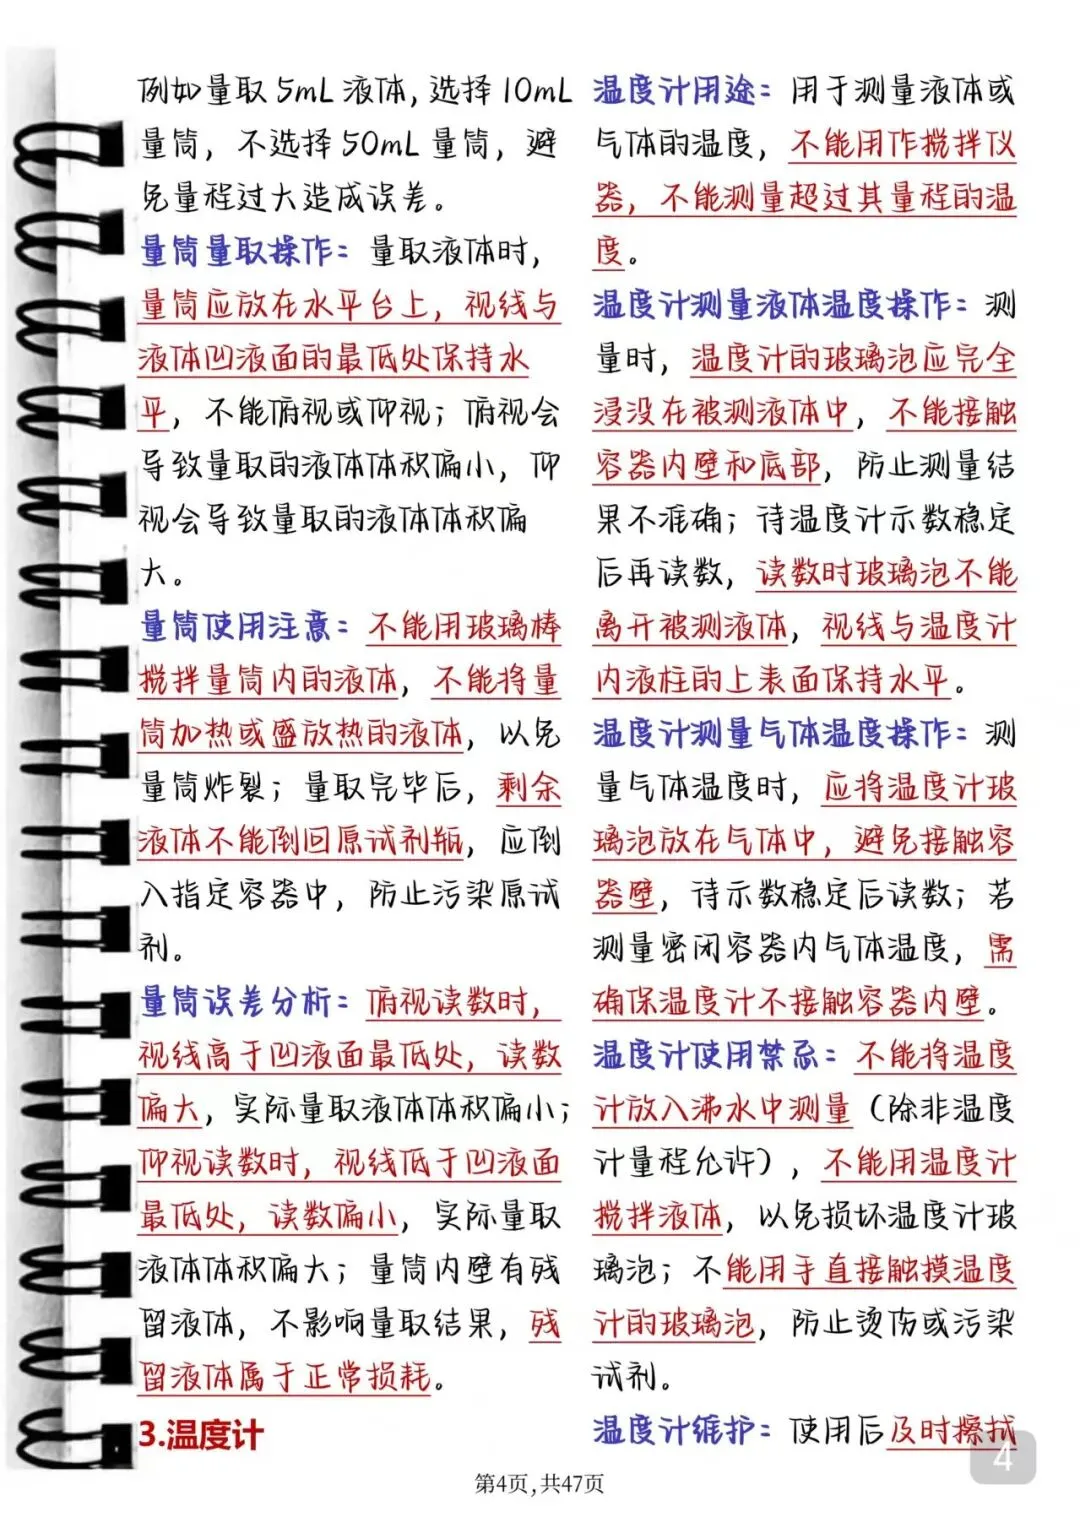 例如量取5mL液体,选择10mL
量筒，不选择50mL量筒，避
免量程过大造成误差。
量筒量取操作：量取液体时，
量筒应放在水平台上，视线与
液体凹液面的最低处保持水
平，不能俯视或仰视；俯视会
导致量取的液体体积偏小，仰
视会导致量取的液体体积偏
大。
量筒使用注意：不能用玻璃棒
搅拌量筒内的液体，不能将量
筒加热或盛放热的液体，以免
量筒炸裂；量取完毕后，剩余
液体不能倒回原试剂瓶，应倒
入指定容器中，防止污染原试
剂。
量筒误差分析：俯视读数时，
视线高于凹液面最低处，读数
偏大，实际量取液体体积偏小；
仰视读数时，视线低于凹液面
最低处，读数偏小，实际量取
液体体积偏大；量筒内壁有残
留液体，不影响量取结果，残
留液体属于正常损耗。
3.温度计
温度计用途：用于测量液体或
气体的温度，不能用作搅拌仪
器，不能测量超过其量程的温
度。
温度计测量液体温度操作：测
量时，温度计的玻璃泡应完全
浸没在被测液体中，不能接触
容器内壁和底部，防止测量结
果不准确；待温度计示数稳定
后再读数，读数时玻璃泡不能
离开被测液体，视线与温度计
内液柱的上表面保持水平。
温度计测量气体温度操作：测
量气体温度时，应将温度计玻
璃泡放在气体中，避免接触容
器壁，待示数稳定后读数；若
测量密闭容器内气体温度，需
确保温度计不接触容器内壁。
温度计使用禁忌：不能将温度
计放入沸水中测量（除非温度
计量程允许），不能用温度计
搅拌液体，以免损坏温度计玻
璃泡；不能用手直接触摸温度
计的玻璃泡，防止烫伤或污染
试剂。
温度计维护：使用后及时擦拭
4
第4页,共47页